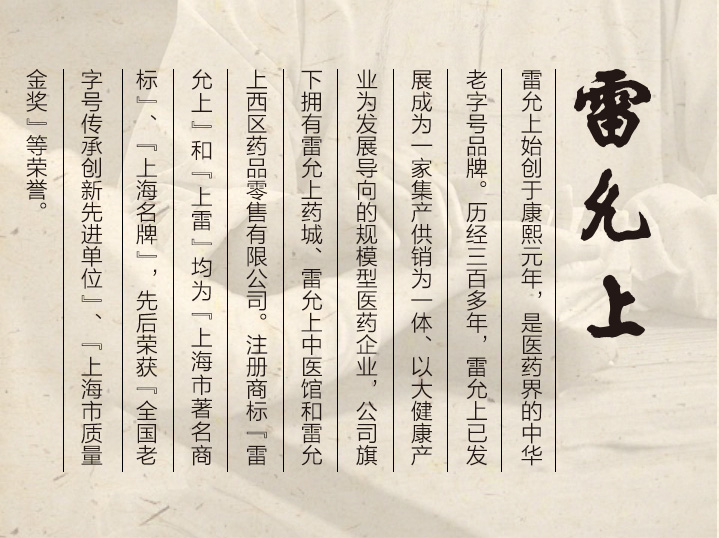 雷允上
雷允上始创于康熙元年，是医药界的中华
老字号品牌。历经三百多年，雷允上已发
展成为一家集产供销为一体、以大健康产
业为发展导向的规模型医药企业，公司旗
下拥有雷允上药城、雷允上中医馆和雷允
上西区药品零售有限公司。注册商标『雷
允上』和『上雷』均为『上海市著名商
标』、『上海名牌』，先后荣获『全国老
字号传承创新先进单位』、『上海市质量
金奖』等荣誉。